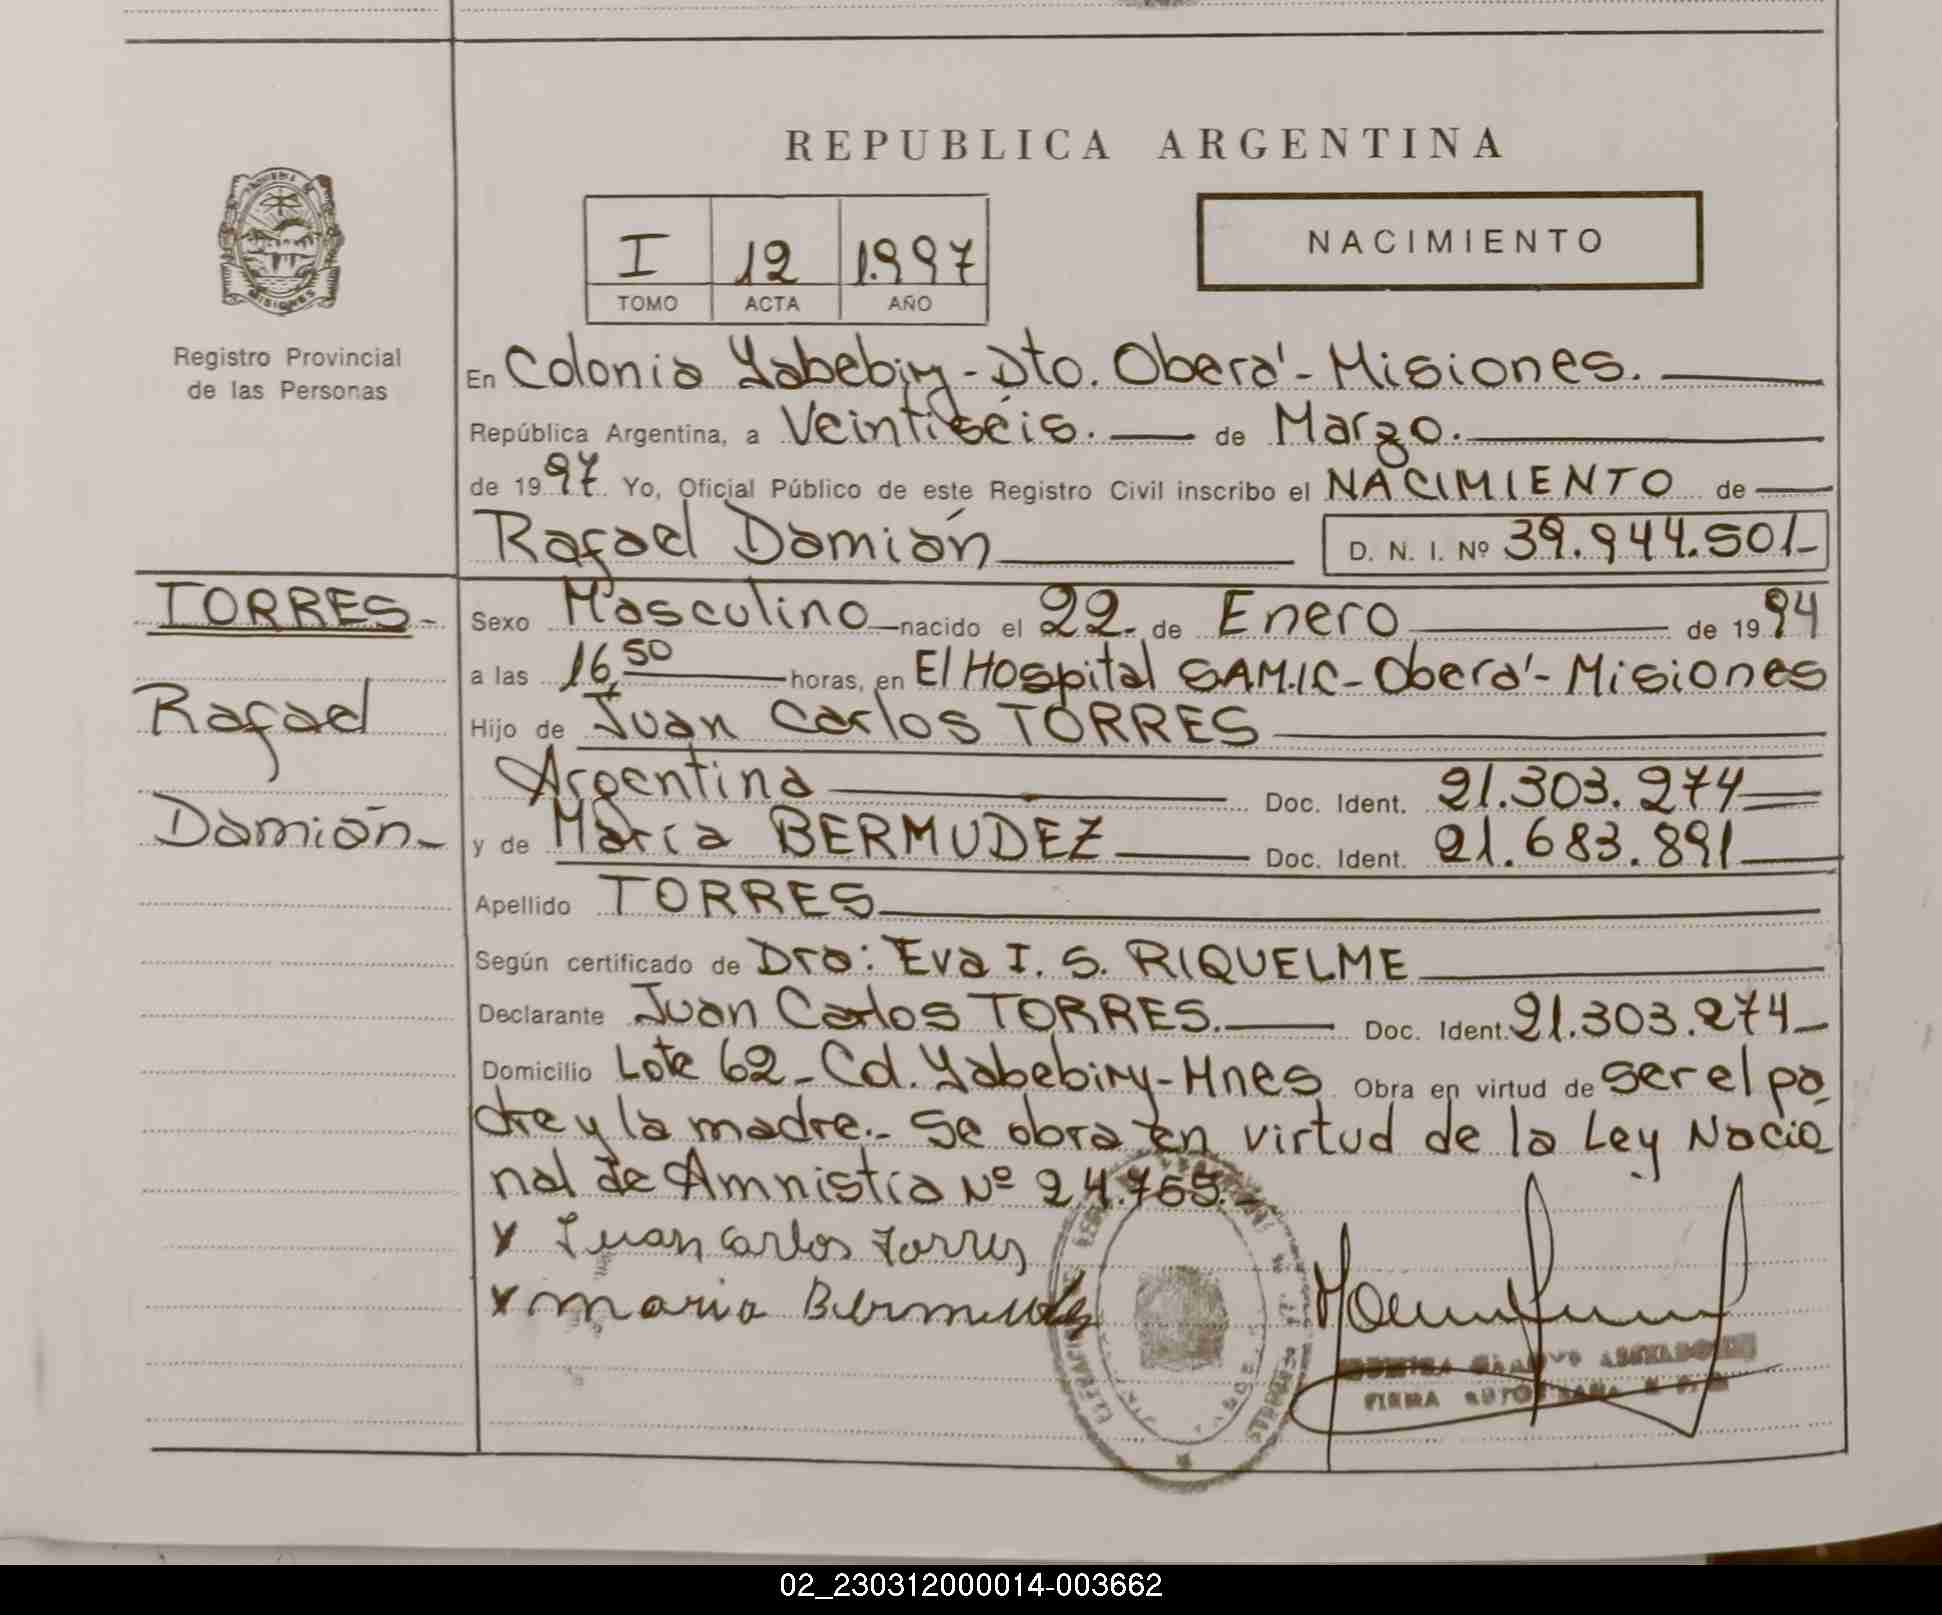 REPUBLICA ARGENTINA
MISIONES
Registro Provincial
de las Personas
I 12 1.997
TOMO ACTA AÑO
NACIMIENTO
En Colonia Yabebiry - Dto. Oberá - Misiones.
República Argentina, a Veintiséis. de Marzo.
de 1997. Yo, Oficial Público de este Registro Civil inscribo el NACIMIENTO de
Rafael Damián D. N. I. Nº 39.944.501-
TORRES-
Rafael
Damián-
Sexo Masculino nacido el 22. de Enero de 1994
a las 16,50 horas, en El Hospital SAMIC - Oberá - Misiones
Hijo de Juan Carlos TORRES
Argentina Doc. Ident. 21.303.274
y de María BERMUDEZ Doc. Ident. 21.683.891
Apellido TORRES
Según certificado de Dra: Eva I. S. RIQUELME
Declarante Juan Carlos TORRES. Doc. Ident. 21.303.274-
Domicilio Lote 62 - Cd. Yabebiry - Mnes Obra en virtud de ser el pa
dre y la madre.- Se obra en virtud de la Ley Nacio
nal de Amnistía Nº 24.755.-
x Juan Carlos Torres
x maria Bermudez
FIRMA
02_230312000014-003662